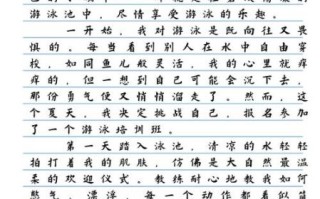 游泳池中，尽情享受游泳的乐趣。
一开始，我对游泳是既向往又畏
惧的。每当看到别人在水中自由穿
梭，如同鱼儿般灵活，我的心里就痒
痒的，但一想到自己可能会沉下去，
那份勇气便又悄悄溜走了。然而，这
个夏天，我决定挑战自己，报名参加
了一个游泳培训班。
第一天踏入泳池，清凉的水轻轻
拍打着我的肌肤，仿佛是大自然最温
柔的欢迎仪式。教练耐心地教我如何
憋气、漂浮，每一个动作都看似简